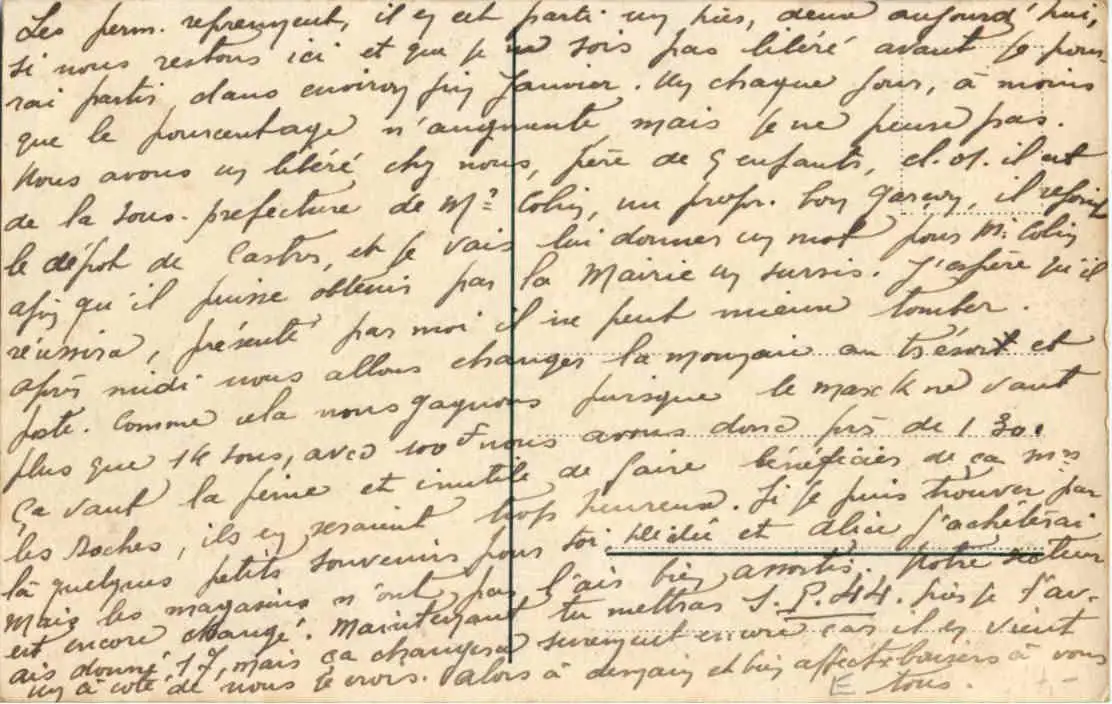 Les perm. reprennent, il en est parti un hier, deux aujourd'hui,
si nous restons ici et que je ne sois pas libéré avant je pour-
rai partir dans environ fin Janvier. Un chaque jour, à moins
que le pourcentage n'augmente, mais je ne pense pas.
Nous avons un libéré chez nous, père de 5 enfants, il est
de la sous-prefecture de Mr Colin, un propr. bon garçon, il rejoint
le dépot de Castres, et je vais lui donner un mot pour Mr Colin
afin qu'il puisse obtenir par la Mairie un sursis. J'espère qu'il
réussira, présenté par moi il ne peut mieux tomber.
après midi nous allons changer la monnaie au trésor et
poste. Comme cela nous gagnons puisque le marck ne vaut
plus que 14 sous, avec 100 F nous avons donc près de 130.
Ça vaut la peine et inutile de faire bénéficier de ça mrs
les Boches, ils en seraient trop heureux. Si je puis trouver par
là quelques petits souvenirs pour toi, Dédée et Alice j'achèterai
Mais les magasins n'ont pas l'air bien assortis. Notre secteur
est encore changé. Maintenant tu mettras S.P. 44. hier je t'av-
ais donné 17, mais ça changera surement encore car il en vient
un à coté de nous je crois. Alors à demain et bien affect. baisers à vous
tous.
E